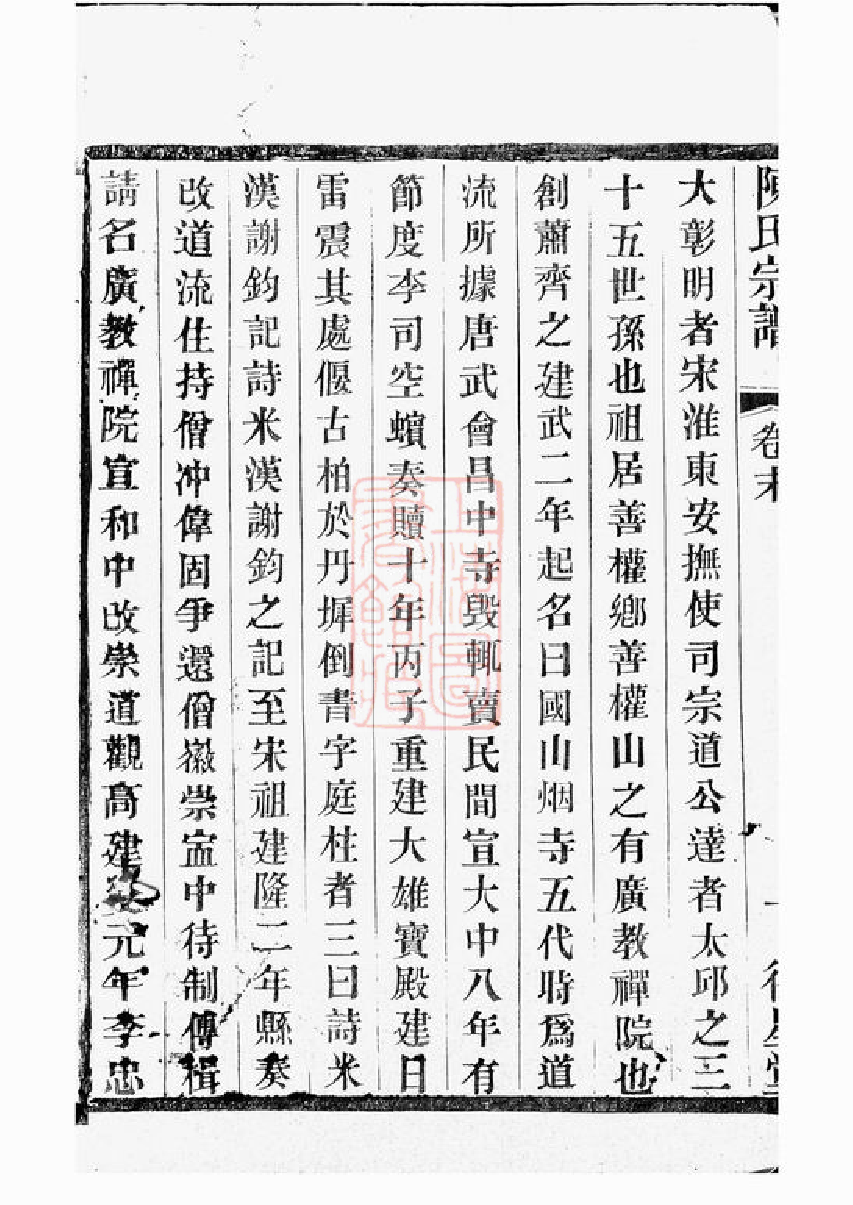 陳氏宗譜 卷末 一
大彰明者宋淮東安撫使司宗道公達者太邱之三
十五世孫也祖居善權鄉善權山之有廣教禪院也
創蕭齊之建武二年起名曰國山烟寺五代時為道
流所據唐武會昌中寺毀輒賣民間宣大中八年有
節度李司空蠙奏贖十年丙子重建大雄寶殿建日
雷震其處偃古柏於丹墀倒書字庭柱者三曰詩米
漢謝鈞記詩米漢謝鈞之記至宋祖建隆二年縣奏
改道流住持僧冲偉固爭還僧徽崇寍中待制傅楫
請名廣教禪院宣和中改崇道觀高建炎元年李忠